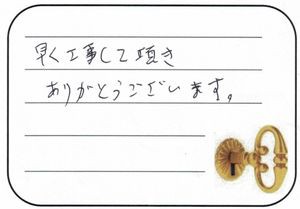 早く工事して頂き
ありがとうございます。